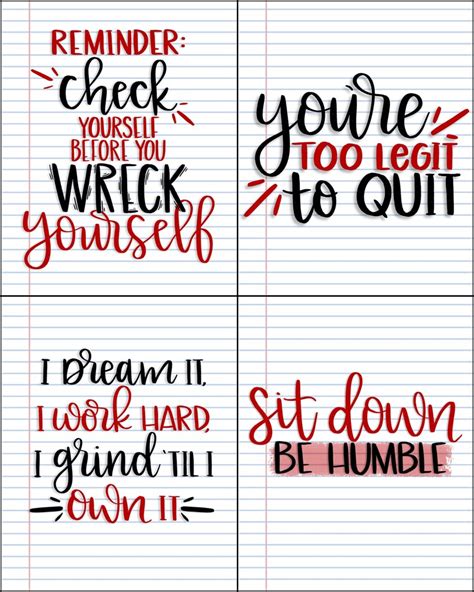 REMINDER:
check
YOURSELF
BEFORE YOU
WRECK
yourself
you're
TOO LEGIT
to QUIT
I DREAM IT,
I WORK HARD,
I grind 'TIL I
OWN IT
Sit down
BE HUMBLE